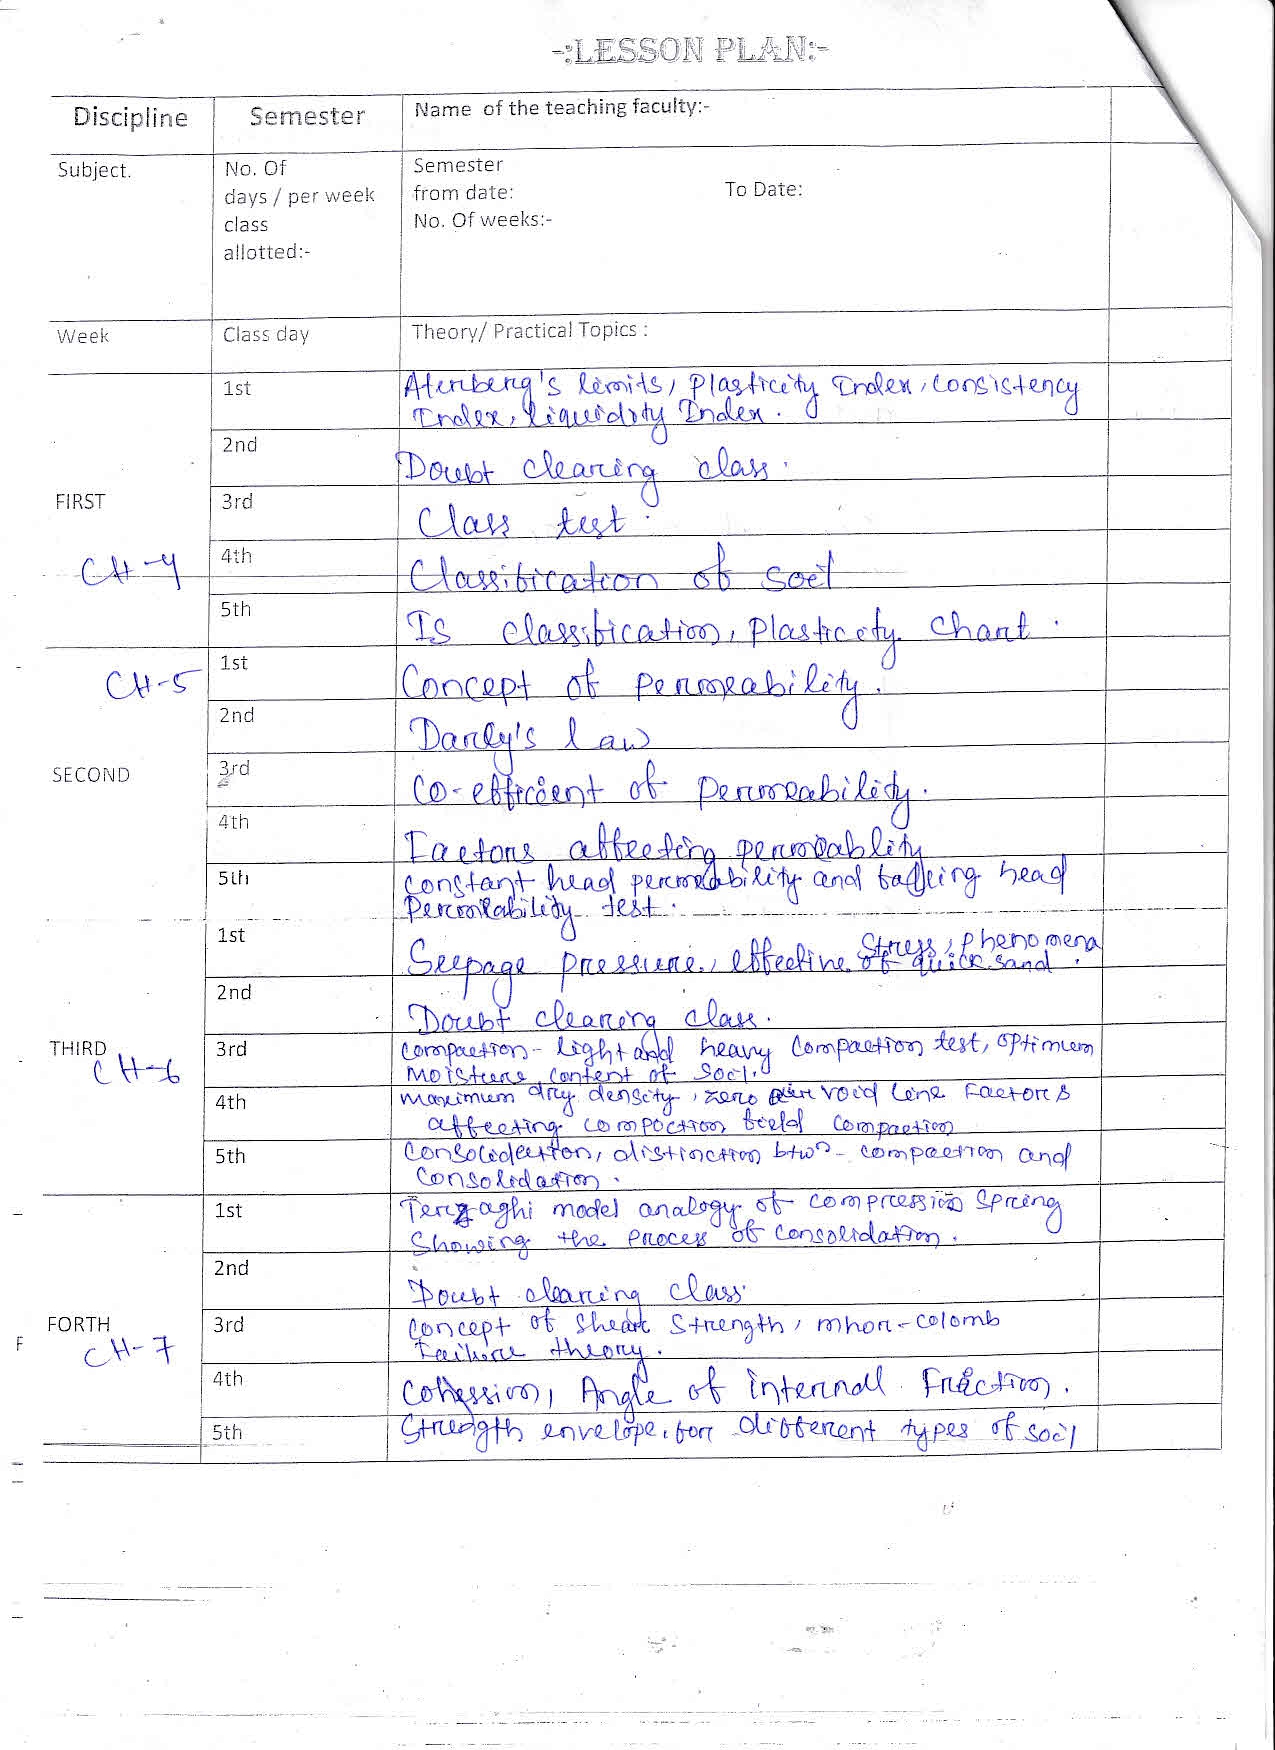 -:LESSON PLAN:-
Discipline Semester Name of the teaching faculty:-
Subject. No. Of days / per week class allotted:- Semester from date: To Date:
No. Of weeks:-
Week Class day Theory/ Practical Topics :
FIRST
CH-4
1st Aterberg's limits, Plasticity Index, Consistency
Index, liquidity Index.
2nd Doubt clearing class.
3rd Class test.
4th Classification of soil
5th Is classification, Plasticity Chart.
CH-5
SECOND
1st Concept of permeability.
2nd Darcy's law
3rd Co-efficient of permeability.
4th Factors affecting permeablity
5th Constant head permeability and falling head
Permeability test.
THIRD
CH-6
1st Seepage pressure, effective stress, phenomena
of quick sand.
2nd Doubt clearing class.
3rd Compaction- light and heavy Compaction test, optimum
Moisture content of soil.
4th Maximum dry density, zero air void line Factors
affecting compaction field compaction
5th Consolidation, distinction btwn- compaction and
Consolidation.
FORTH
CH-7
1st Terzaghi model analogy of compression spring
Showing the process of consolidation.
2nd Doubt clearing class
3rd Concept of Shear Strength, mhor-colomb
Failure theory.
4th Cohession, Angle of internal Friction.
5th Strength envelope, for different types of soil
F